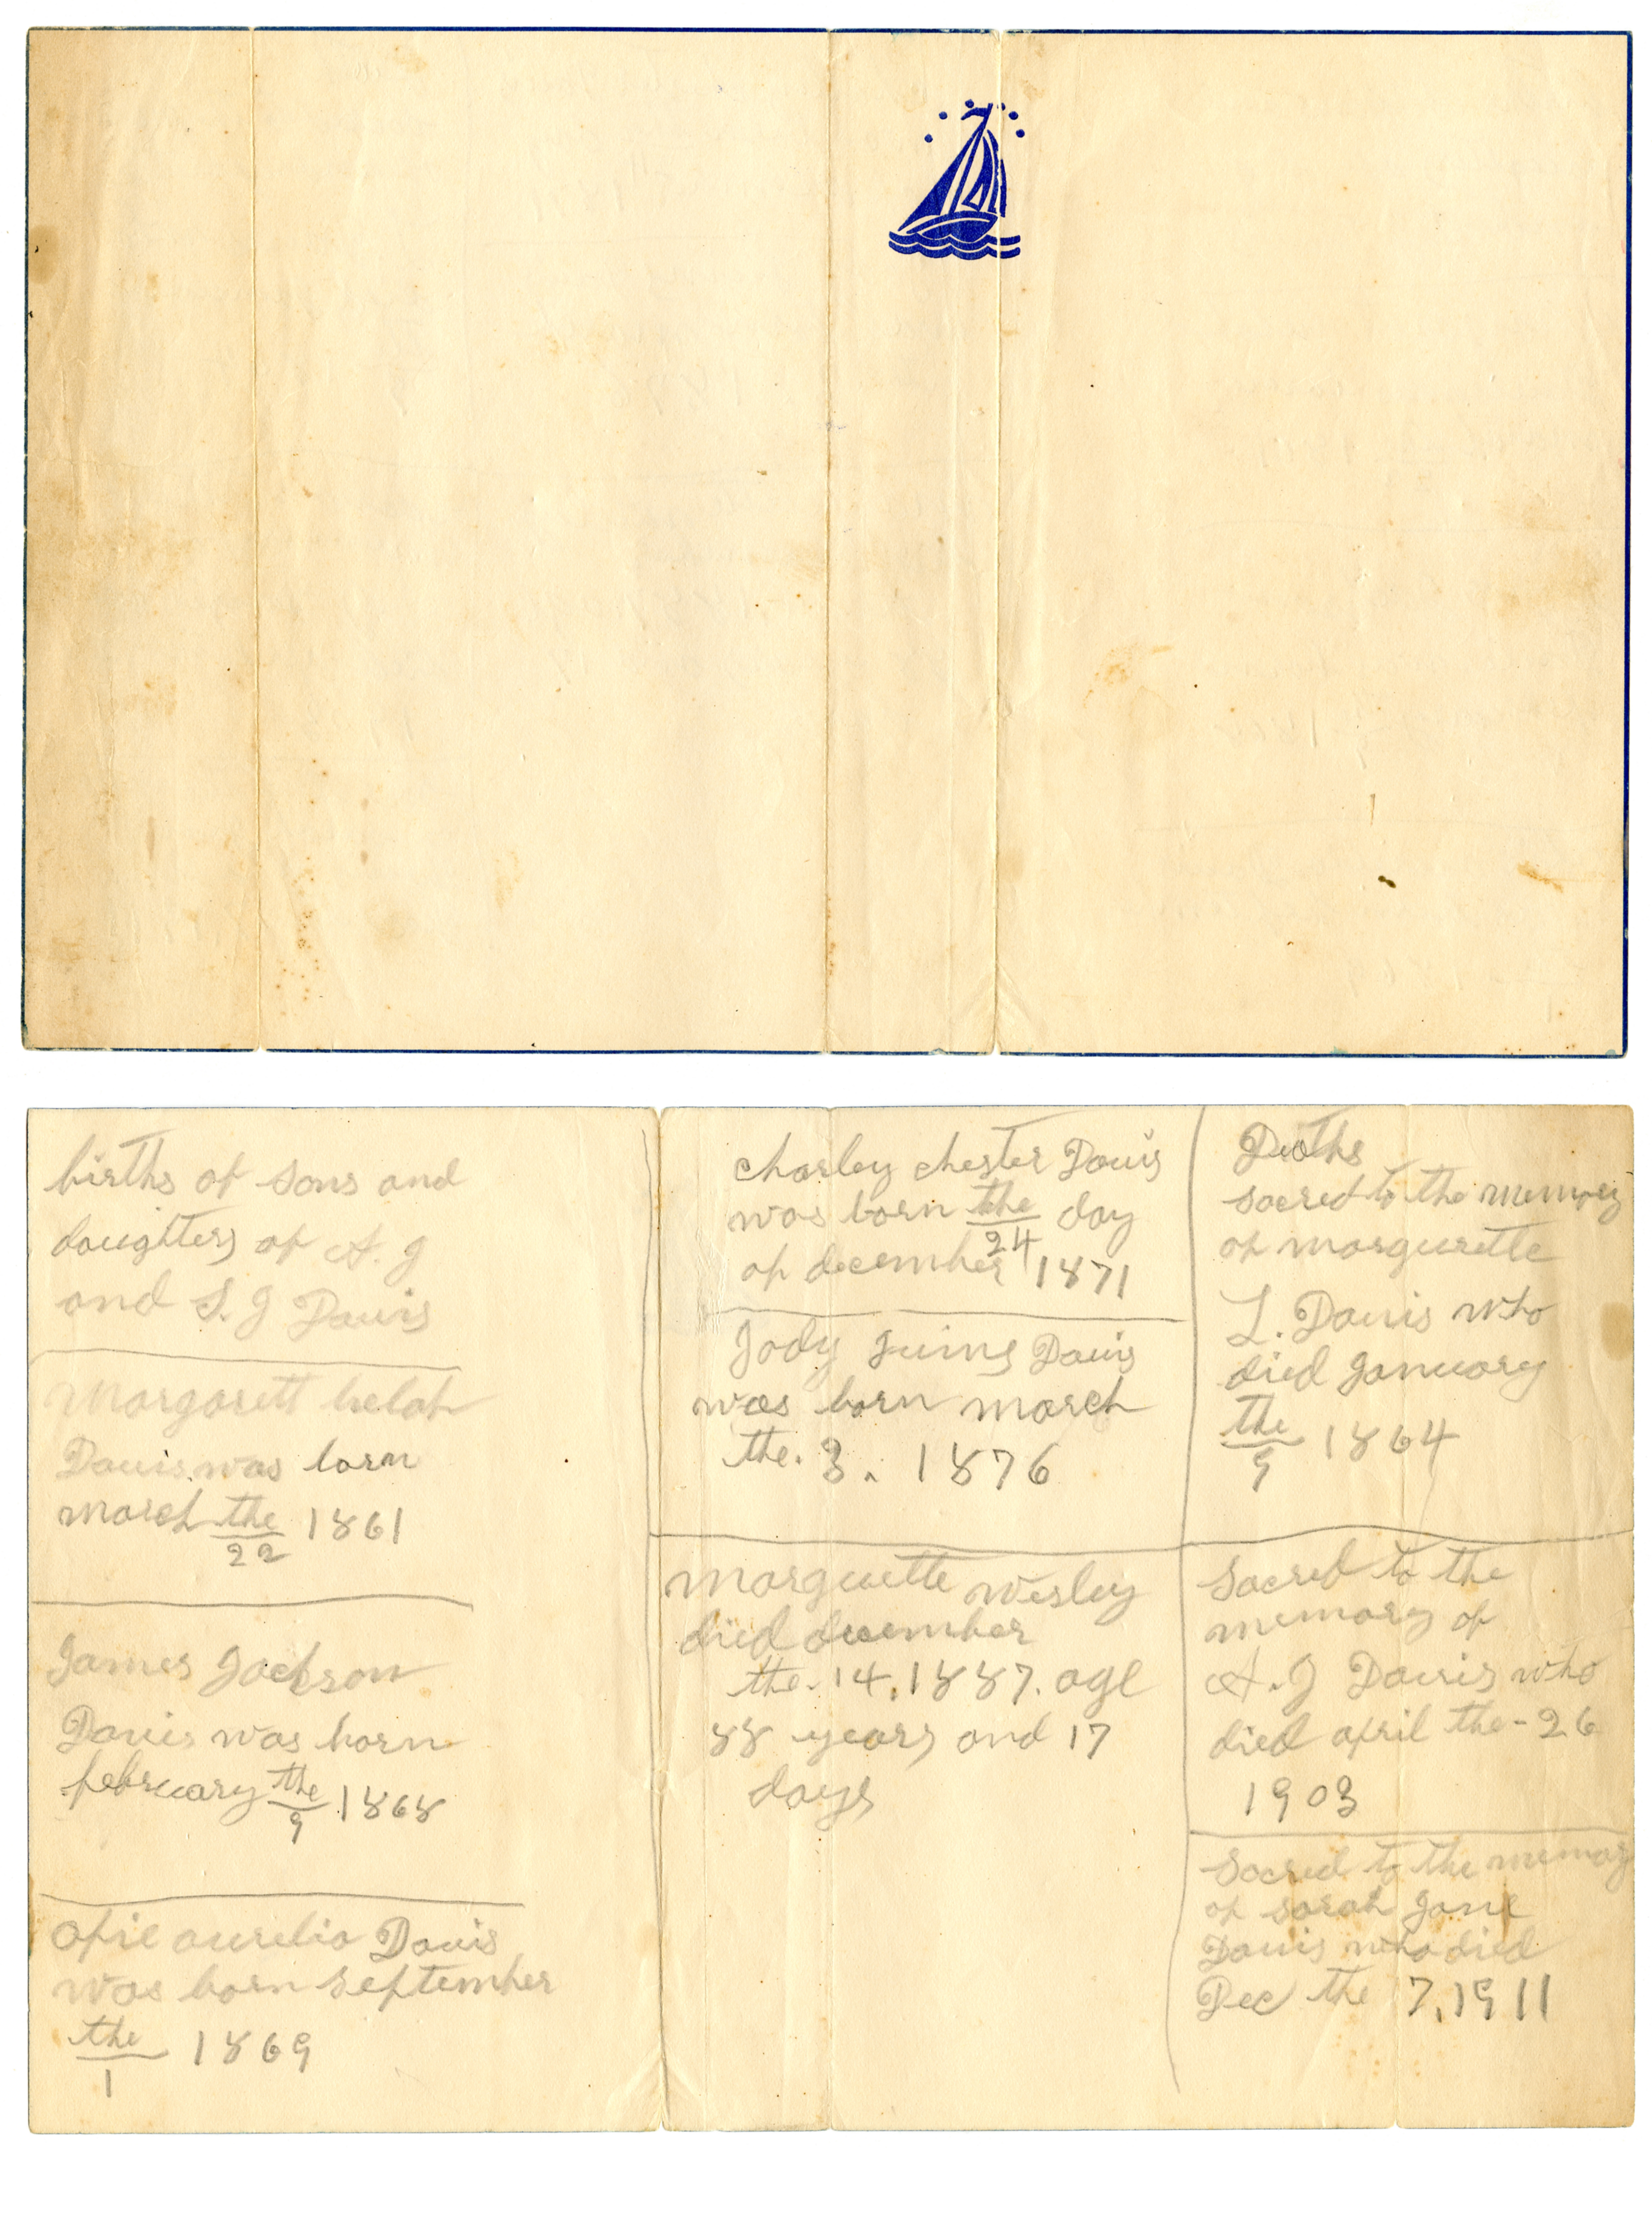 births of sons and
daughters of A. J
and S. J Davis
Margarett
Davis was born
march the 22 1861
James Jackson
Davis was born
february the 9 1868
opie aurelia Davis
was born September
the 1 1869
charley chester Davis
was born the 24 day
of december 1871
Jody Davis
was born march
the. 3. 1876
Marguette Wesley
died december
the. 14, 1887. age
88 years and 17
days
Deaths
sacred to the memory
of margurette
L. Davis who
died January
the 9 1864
Sacred to the
memory of
A. J Davis who
died april the - 26
1903
Sacred to the memory
of sarah Jane
Davis who died
Dec the 7, 1911